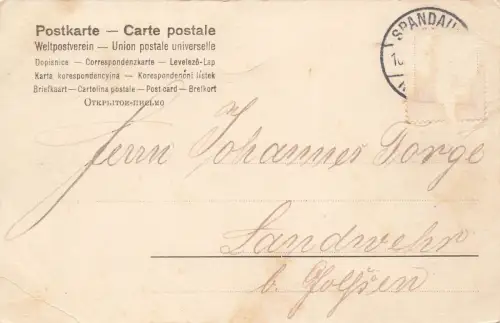 Postkarte — Carte postale
Weltpostverein — Union postale universelle
Dopisnice — Correspondenzkarte — Levelező-Lap
Karta korespondencyjna — Korespondenční listek
Briefkaart — Cartolina postale — Post card — Brefkort
Открытое-письмо
SPANDAU
Herrn Johannes Torge
Landwehr
b. Golßen